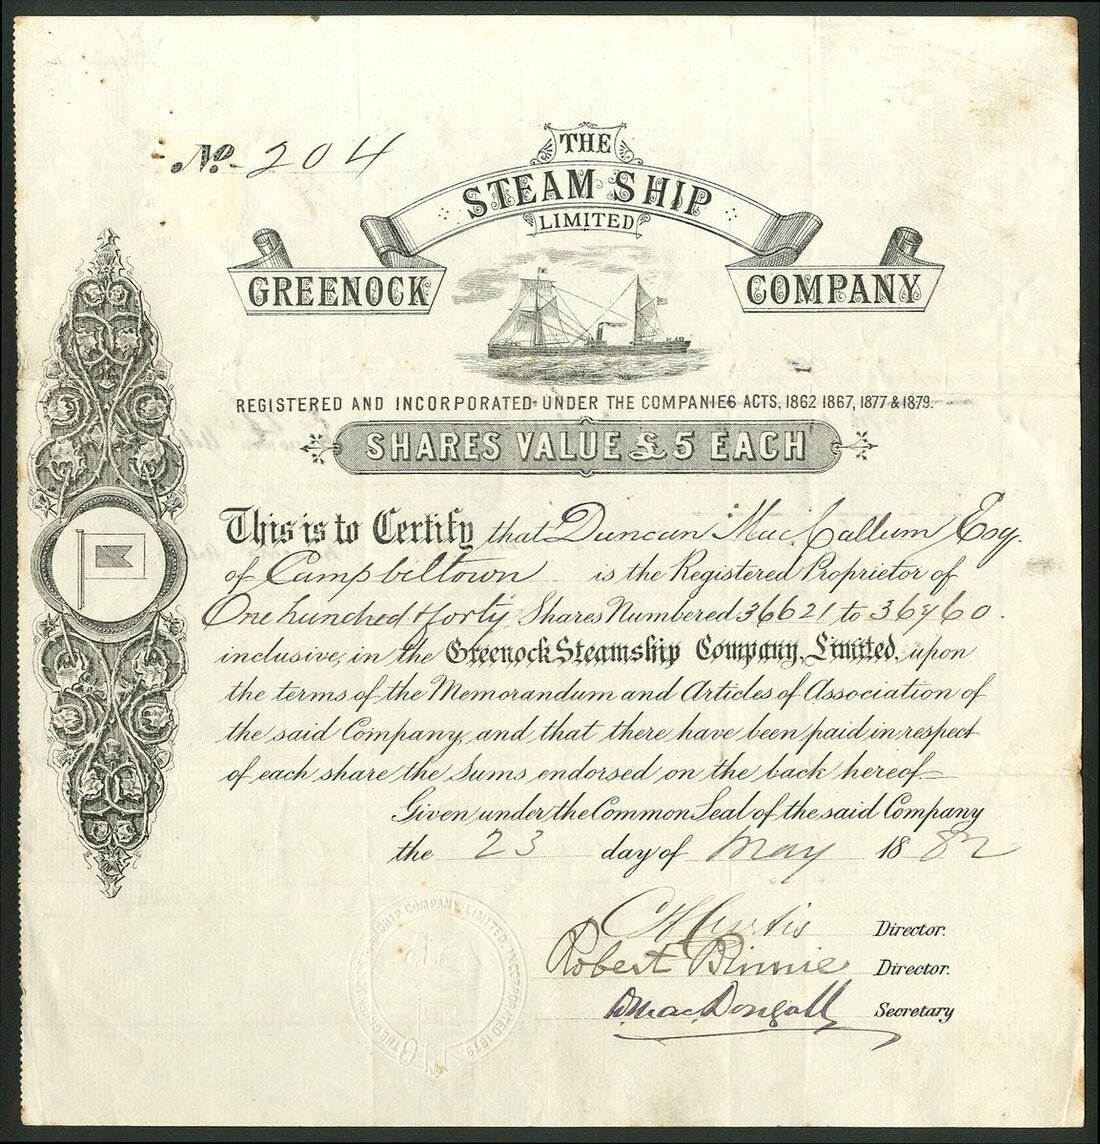 No. 204
THE
STEAM SHIP
LIMITED
GREENOCK COMPANY
REGISTERED AND INCORPORATED UNDER THE COMPANIES ACTS, 1862 1867, 1877 & 1879.
SHARES VALUE £5 EACH
This is to Certify that Duncan MacCallum Esq.
of Campbiltown is the Registered Proprietor of
One hundred & forty Shares Numbered 36621 to 36760.
inclusive, in the Greenock Steamship Company, Limited, upon
the terms of the Memorandum and Articles of Association of
the said Company, and that there have been paid in respect
of each share the Sums endorsed on the back hereof.
Given under the Common Seal of the said Company
the 23 day of May 1882
C H Curtis Director.
Robert Binnie Director.
D MacDougall Secretary
THE GREENOCK STEAMSHIP COMPANY LIMITED. INCORPORATED 1879.